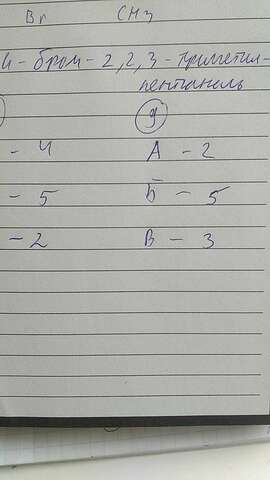 Br CH3
4-бром-2,2,3-триметил-
пентаналь
9
- 4 А - 2
- 5 Б - 5
- 2 В - 3